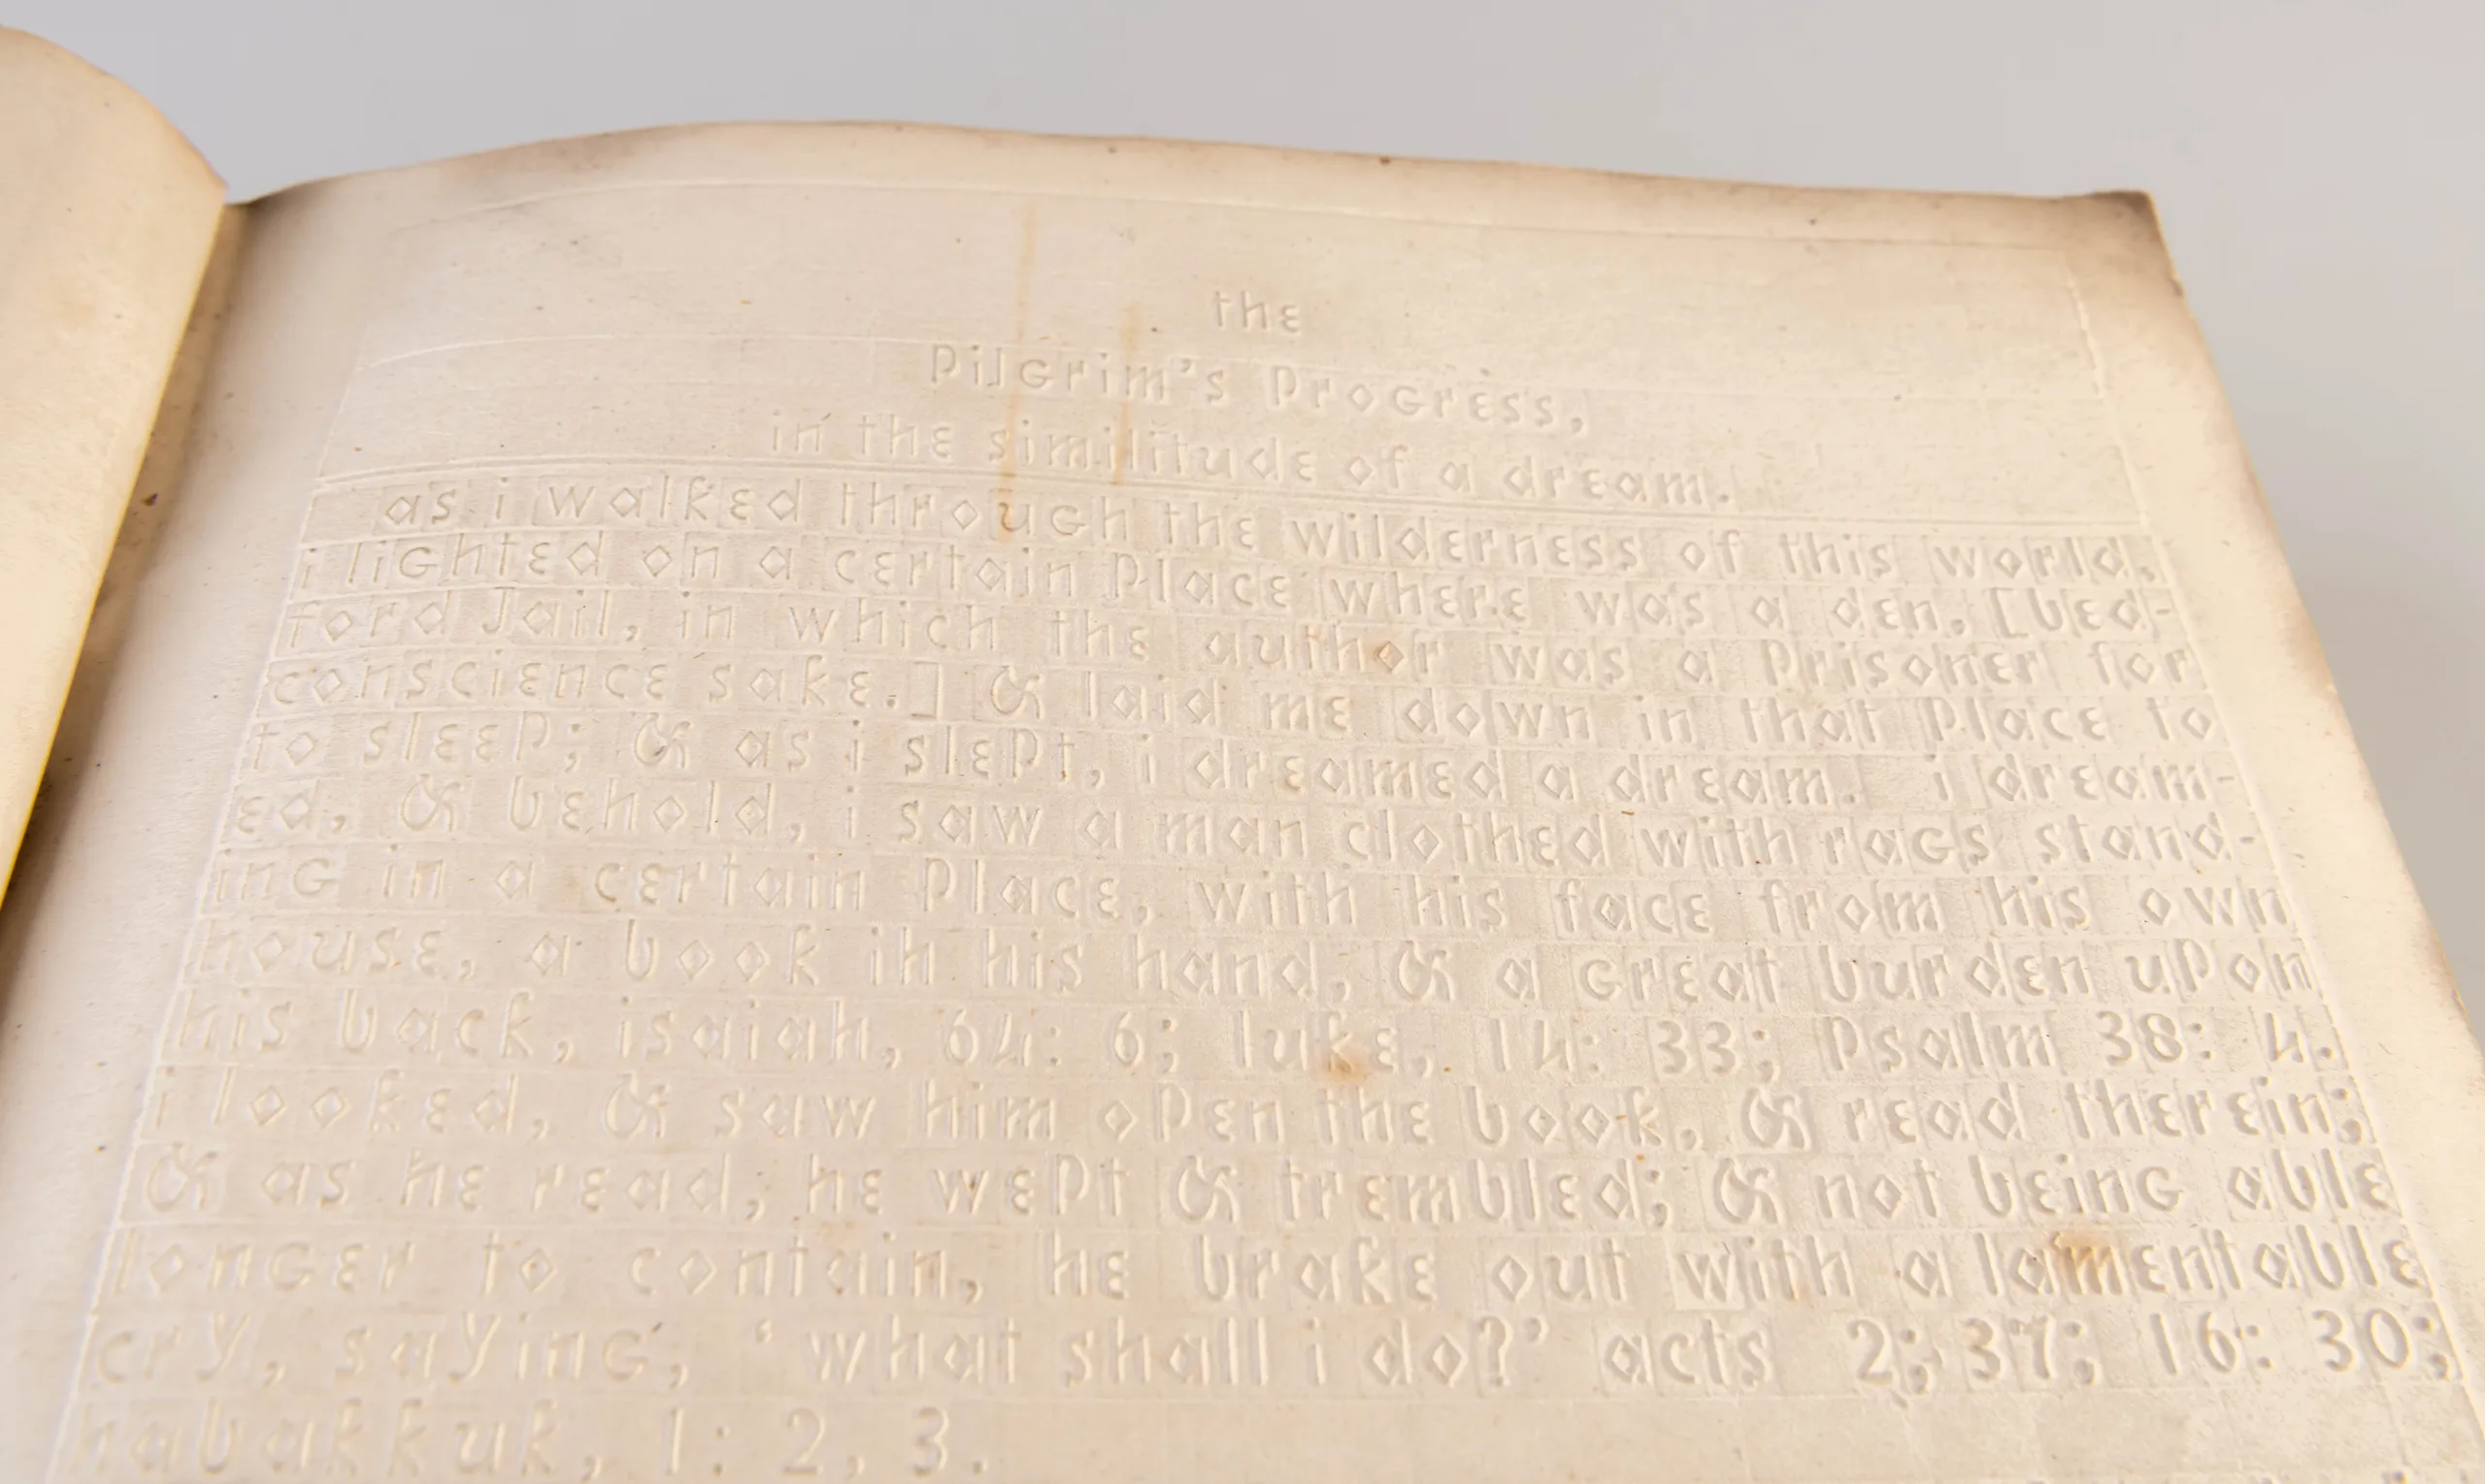 the
pilgrim's progress,
in the similitude of a dream.
as i walked through the wilderness of this world,
i lighted on a certain place where was a den, [bed-
ford jail, in which the author was a prisoner for
conscience sake.] & laid me down in that place to
to sleep; & as i slept, i dreamed a dream. i dream-
ed, & behold, i saw a man clothed with rags stand-
ing in a certain place, with his face from his own
house, a book in his hand, & a great burden upon
his back, isaiah, 64: 6; luke, 14: 33; psalm 38: 4.
i looked, & saw him open the book, & read therein;
& as he read, he wept & trembled; & not being able
longer to contain, he brake out with a lamentable
cry, saying, 'what shall i do?' acts 2; 37; 16: 30;
habakkuk, 1: 2, 3.